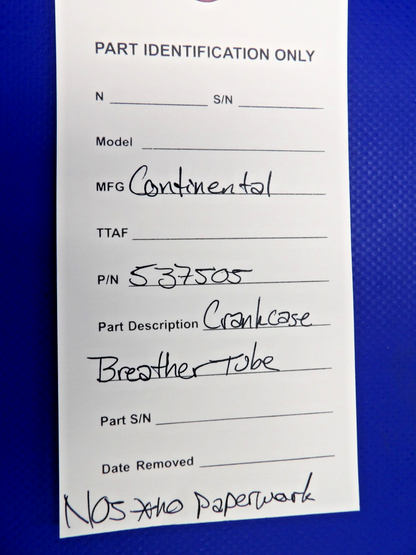 PART IDENTIFICATION ONLY
N ____________ S/N ____________
Model ____________
MFG Continental
TTAF ____________
P/N 537505
Part Description Crankcase
Breather Tube
Part S/N ____________
Date Removed ____________
NOS no paperwork